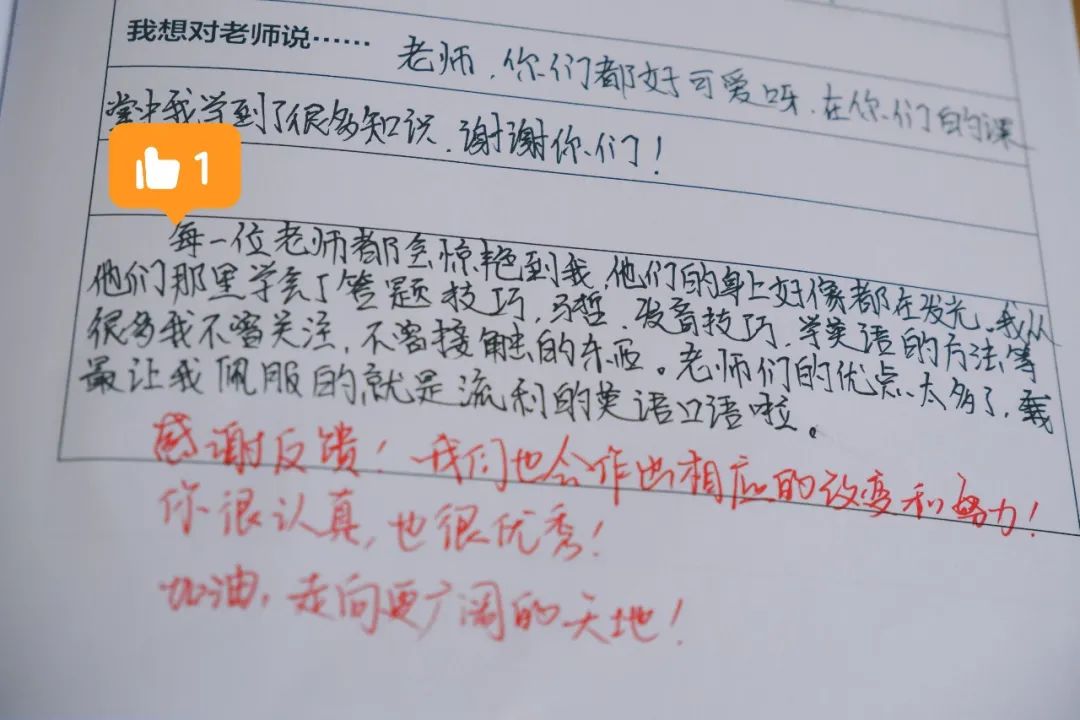 我想对老师说……
老师,你们都好可爱呀,在你们的课
堂中我学到了很多知识,谢谢你们!
1
每一位老师都会惊艳到我,他们的身上好像都在发光。我从
他们那里学会了答题技巧,马哲,发音技巧,学英语的方法等
很多我不曾关注,不曾接触的东西。老师们的优点太多了,我
最让我佩服的就是流利的英语口语啦。
感谢反馈!我们也会作出相应的改变和努力!
你很认真,也很优秀!
加油,走向更广阔的天地!